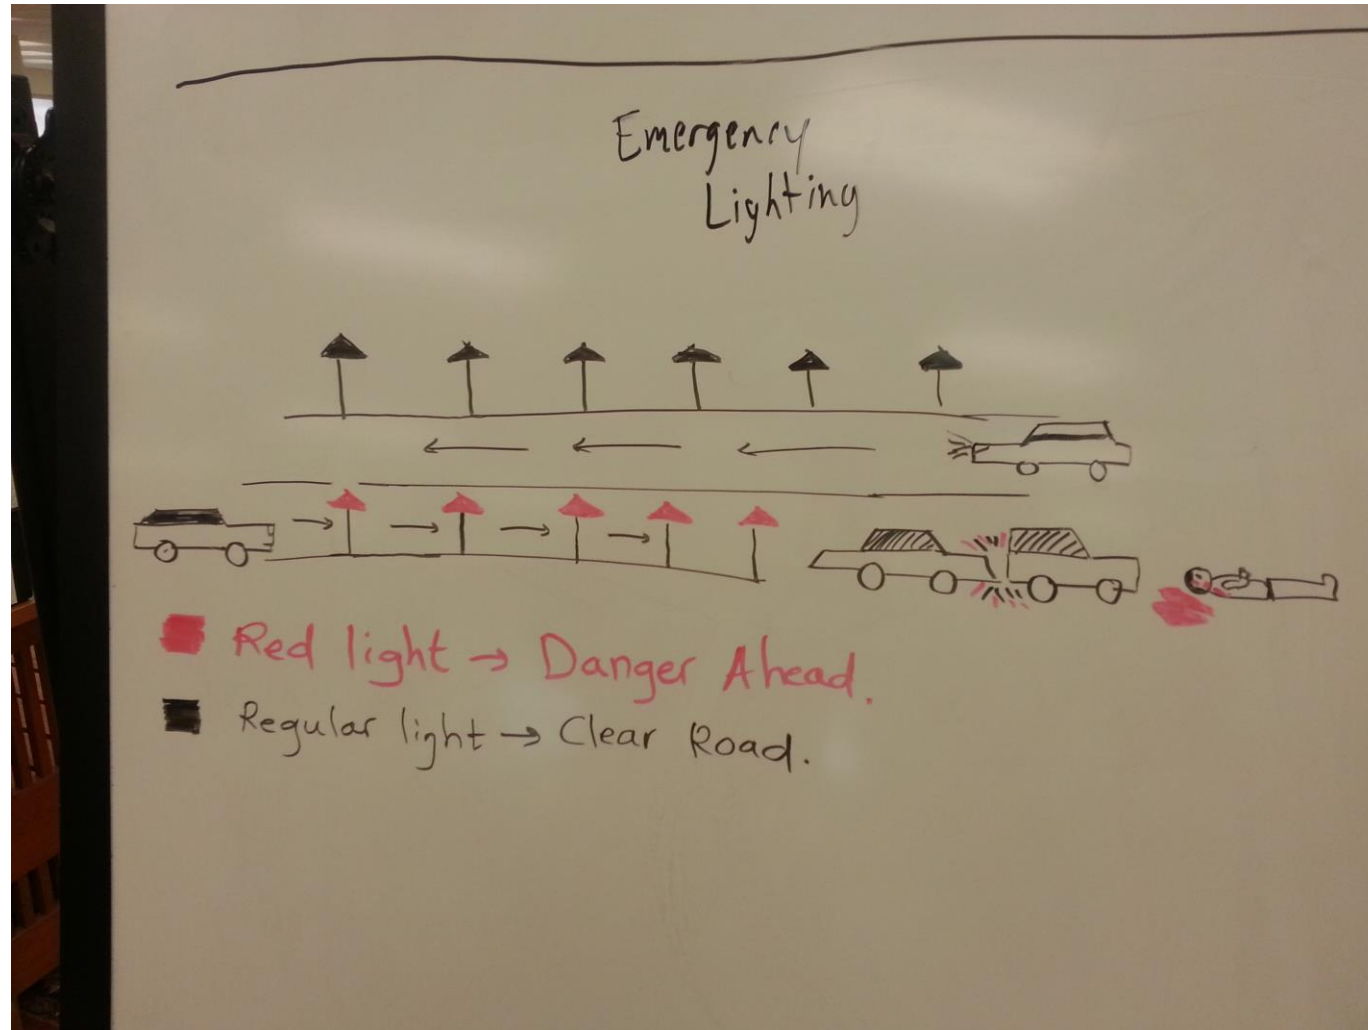 Emergency
Lighting
Red light → Danger Ahead.
Regular light → Clear Road.